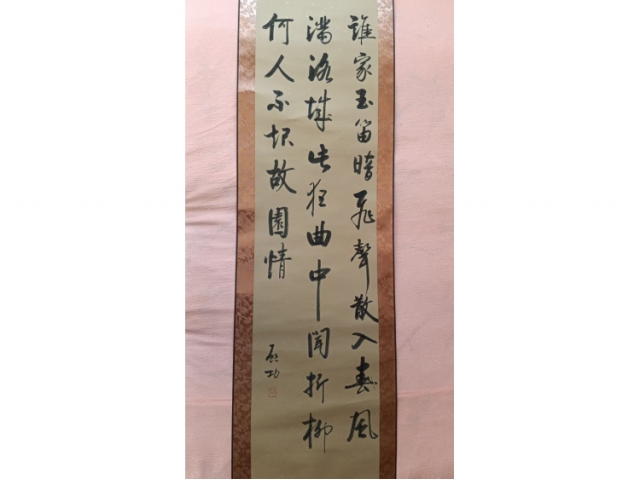 誰家玉笛暗飛聲散入春風
滿洛城此夜曲中聞折柳
何人不起故園情
启功